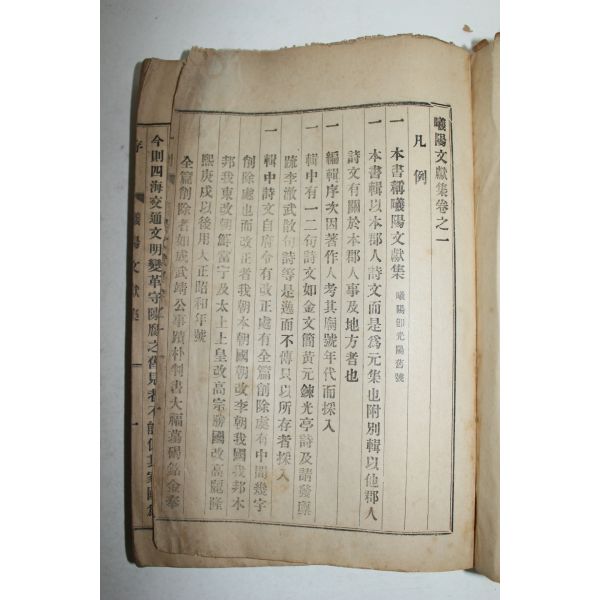 曦陽文獻集卷之一
凡例
一 本書稱曦陽文獻集 曦陽卽光陽舊號
一 本書輯以本郡人詩文而是爲元集也附別輯以他郡人
詩文有關於本郡人事及地方者也
一 編輯序次因著作人考其廟號年代而採入
一 輯中有一二句詩文如金文簡黃元鍊光亭詩及請發
疏李澈武散句詩等是逸而不傳只以所存者採入
一 輯中詩文自府令有改正處有全篇削除處有中間幾字
削除處也而改正者我朝本朝國朝改李朝我國我邦本
邦我東改朝鮮富字及太上上皇改高宗勝國改高麗隆
熙庚戌以後用大正昭和年號
全篇削除者如成武靖公事蹟朴判書大福墓碣銘金奉
序 曦陽文獻集 一
今則四海交通文明變革守陳腐之舊見者不